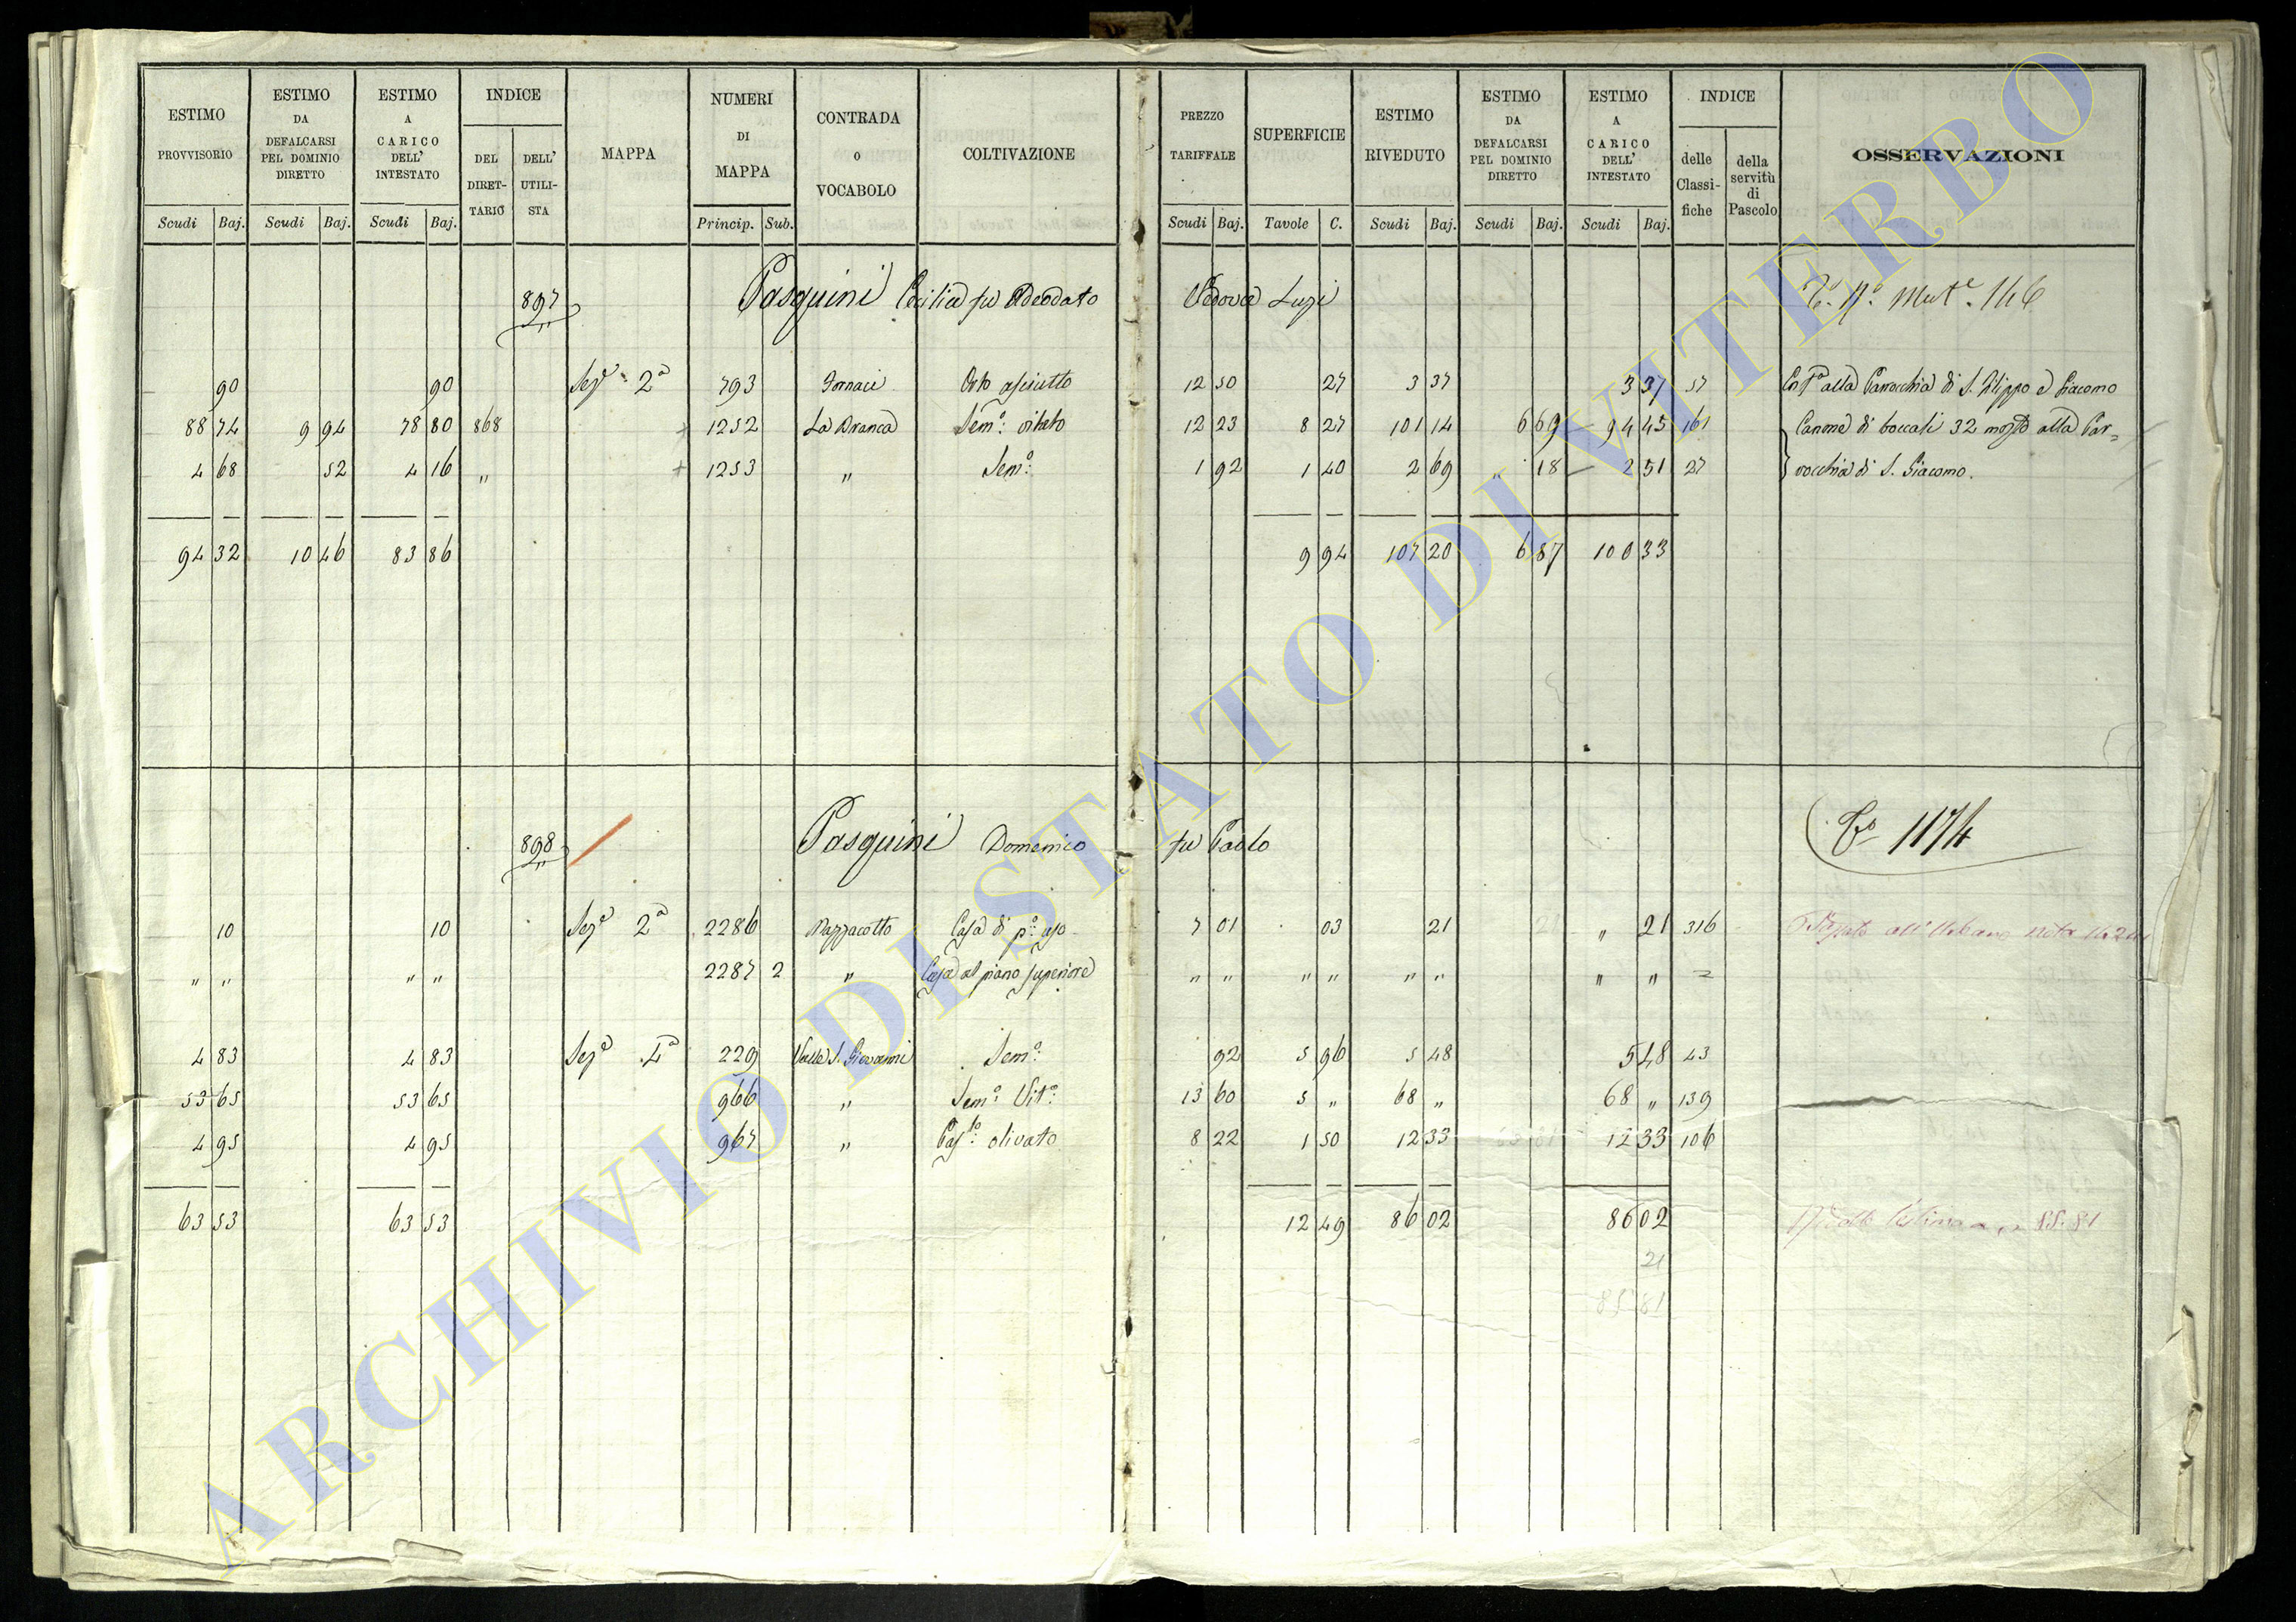 ESTIMO PROVVISORIO
ESTIMO DA DEFALCARSI PEL DOMINIO DIRETTO
ESTIMO A CARICO DELL' INTESTATO
INDICE
DEL DIRET- TARIO
DELL' UTILI- STA
MAPPA
NUMERI DI MAPPA
CONTRADA O VOCABOLO
COLTIVAZIONE
PREZZO TARIFFALE
SUPERFICIE
ESTIMO RIVEDUTO
ESTIMO DA DEFALCARSI PEL DOMINIO DIRETTO
ESTIMO A CARICO DELL' INTESTATO
INDICE
delle Classi- fiche
della servitù di Pascolo
OSSERVAZIONI
Scudi Baj. Scudi Baj. Scudi Baj. Princip. Sub. Scudi Baj. Tavole C. Scudi Baj. Scudi Baj. Scudi Baj.
897 Pasquini Cecilia fu Adeodato Vedova Luzi Mut. 146
90 90 Sez. 2a 793 Fornaci Orto asciutto 12 50 27 3 37 3 37 57 alla Parrocchia di S. Filippo e Giacomo
88 74 9 94 78 80 868 1252 La Branca Semo. vitato 12 23 8 27 101 14 6 69 94 45 161 Canone di boccali 32 mosto alla Par=
4 68 52 4 16 " 1253 " Semo. 1 92 1 40 2 69 " 18 2 51 27 rocchia di S. Giacomo.
94 32 10 46 83 86 9 94 107 20 6 87 100 33
898 Pasquini Domenico fu Paolo 1174
10 10 Sez. 2a 2286 Mazzacotto Casa di po. uso 7 01 03 21 21 " 21 316 all'Urbano
" " " " 2287 2 " Casa al piano superiore " " " " " " " "
4 83 4 83 Sez. 4a 229 Valle S. Giovanni Semo. 92 5 96 5 48 5 48 43
53 65 53 65 966 " Semo. Vito. 13 60 5 " 68 " 68 " 139
4 95 4 95 967 " Pasto. olivato 8 22 1 50 12 33 12 33 106
63 53 63 53 12 49 86 02 86 02 85.81
21
85 81
ARCHIVIO DI STATO DI VITERBO